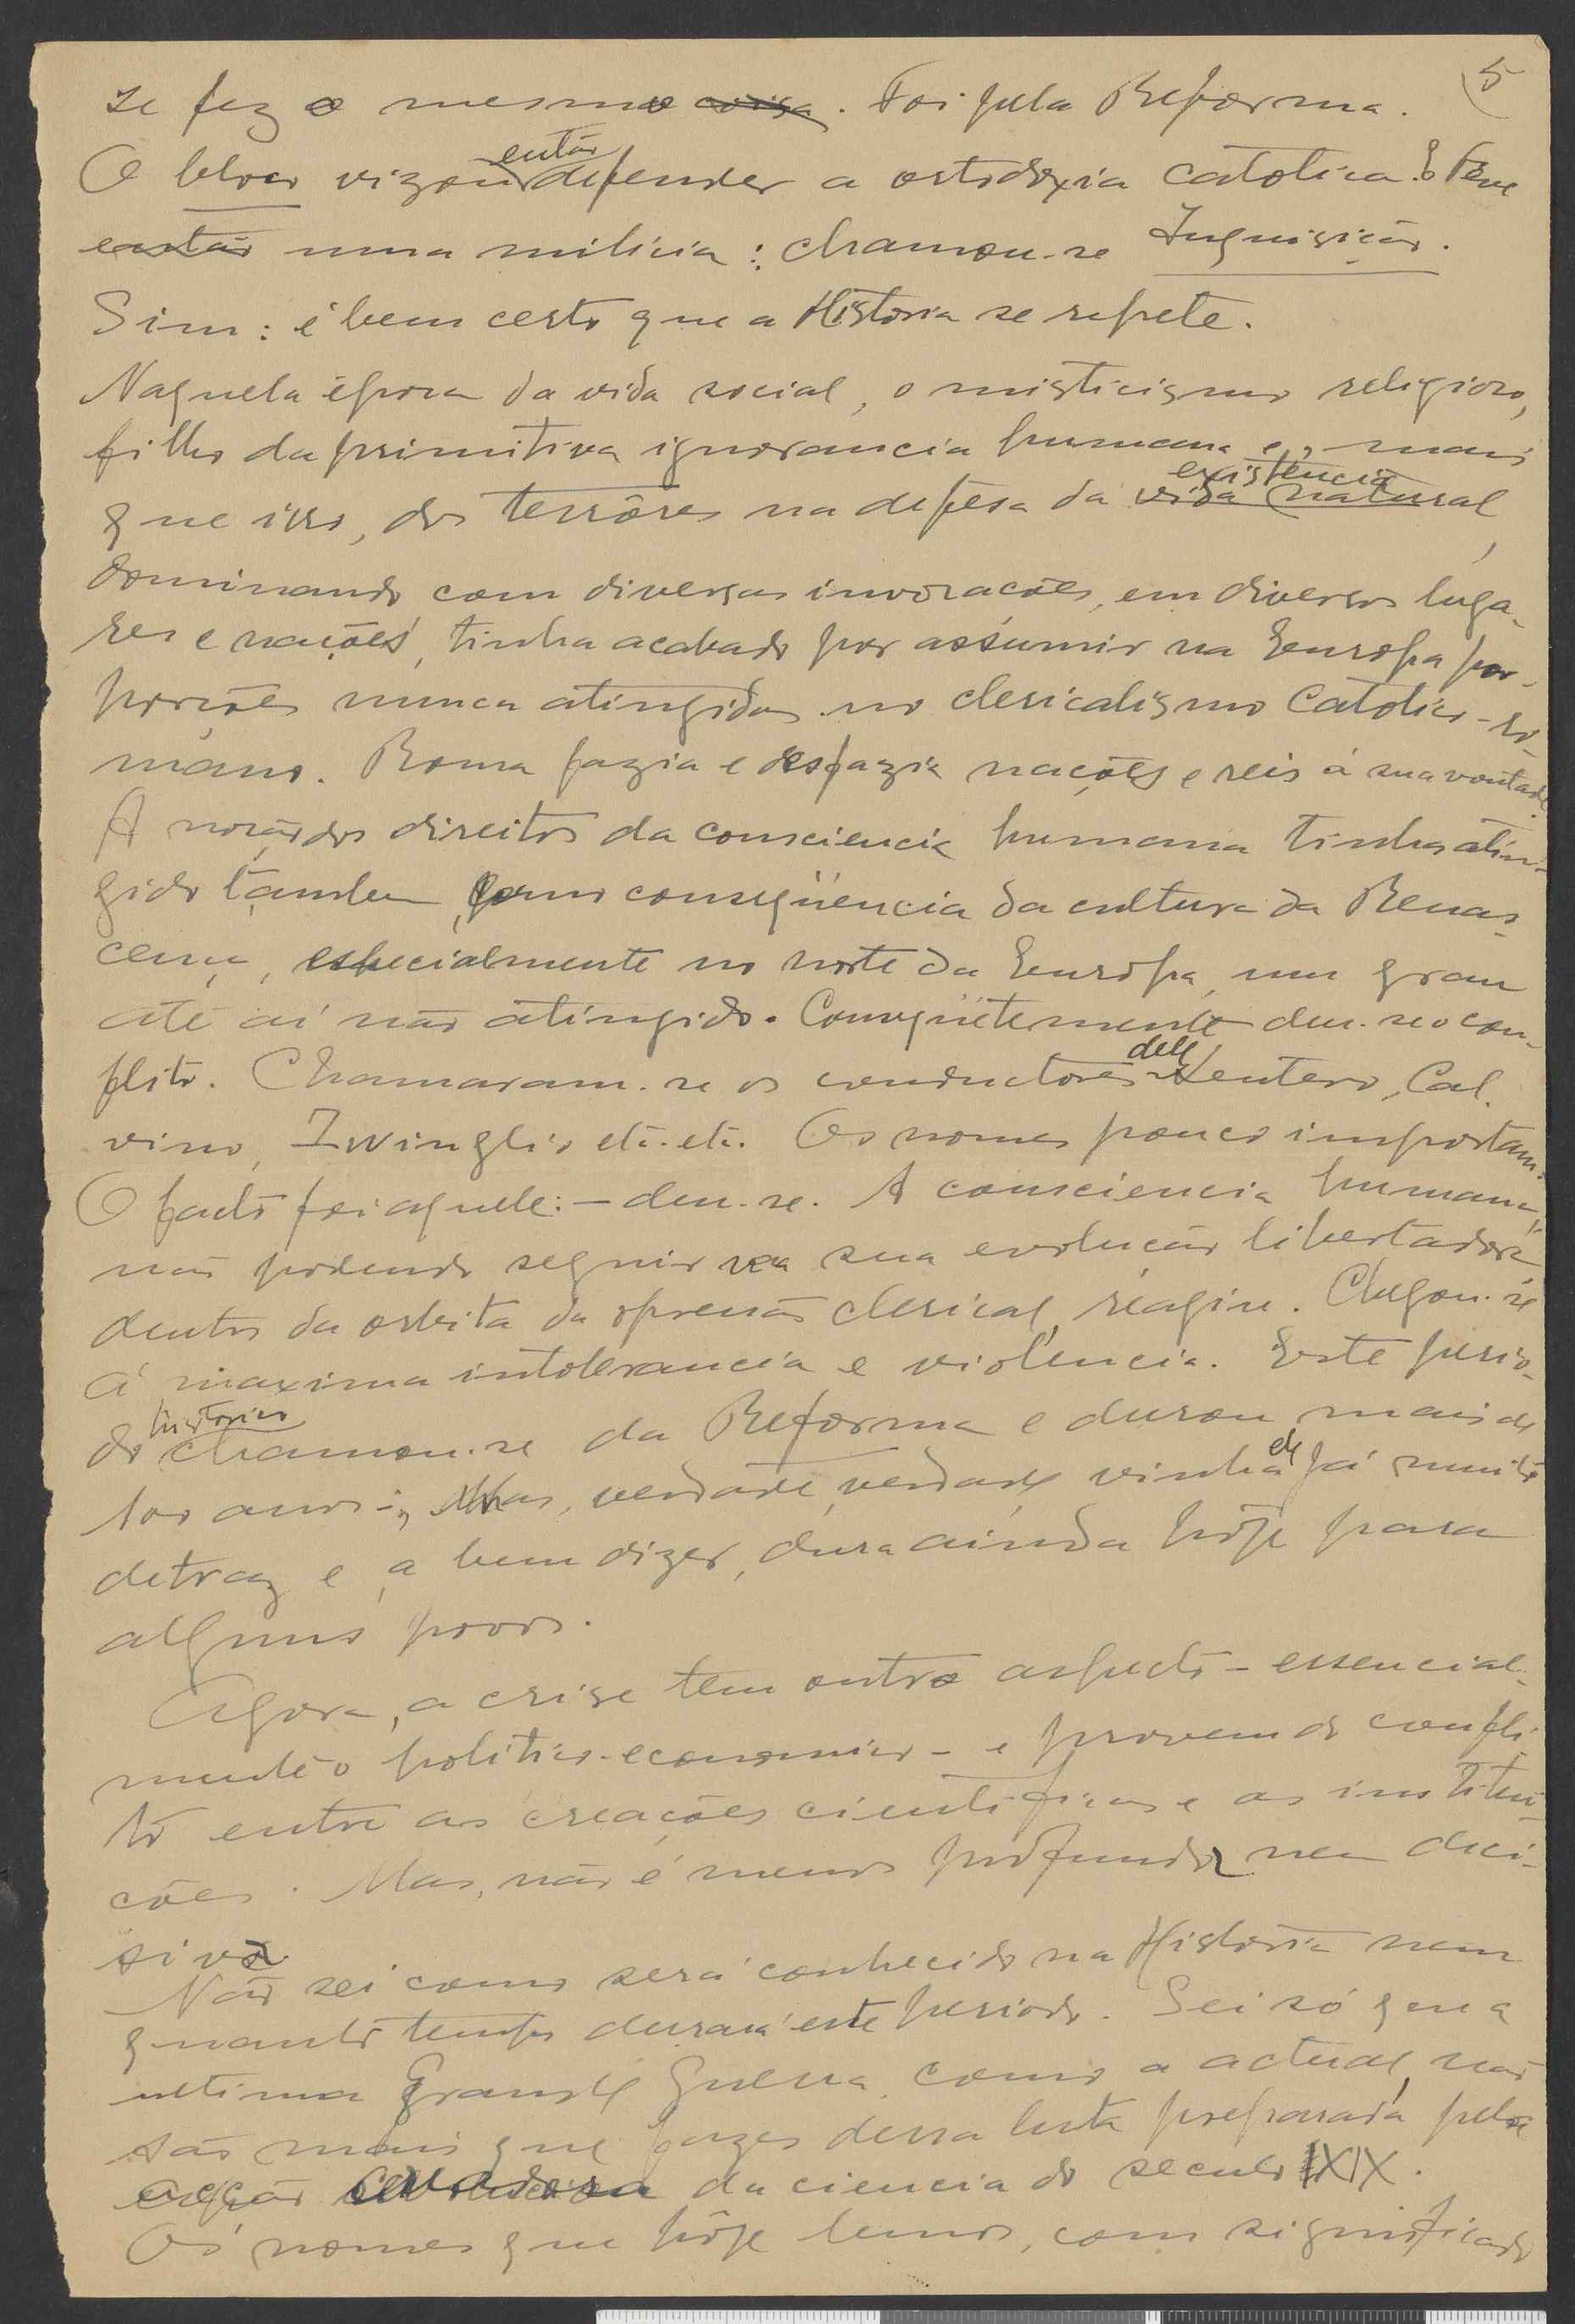 5
se fez o mesmo coisa. Foi pela Reforma.
O bloco vizou então defender a ortodoxia catolica. E teve
então uma milicia: chamou-se Inquisição.
Sim: é bem certo que a Historia se repete.
Naquela época da vida social, o misticismo religioso,
filho da primitiva ignorancia humana e, mais
que isso, dos terrôres na defesa da existência vida natural,
dominando com diversas invocações, em diversos luga-
res e nações, tinha acabado por assumir na Europa por-
porções nunca atingidas no clericalismo Catolico-ro-
mano. Roma fazia e desfazia nações e reis á sua vontade.
A noção dos direitos da consciencia humana tinha atin-
gido tambem, como conseqüencia da cultura da Renas-
cença, especialmente no norte da Europa, um grau
até aí não atingido. Conseqüetemente deu-se o con-
flito. Chamaram-se os conductores dele Leutero, Cal-
vino, Zwinglio etc. etc. Os nomes pouco importam.
O facto foi aquele: – deu-se. A consciencia humana,
não podendo seguir na sua evolução libertadora
dentro da orbita da opressão clerical, reagiu. Chegou-se
á maxima intolerancia e violencia. Este perio-
do historico chamou-se da Reforma e durou mais de
100 anos; Mas, verdade, verdade vinha de já muito
detraz e, a bem dizer, dura ainda hôje para
alguns povos.
Agora, a crise tem outro aspecto – essencial-
mente o politico-economico – e provem do confli-
to entre as creações cientificas e as institui-
ções. Mas, não é menos profunda nem deci-
siva
Não sei como será conhecido na Historia nem
quanto tempo durará este periodo. Sei só que a
ultima Grande Guerra, como a actual, não
são mais que fazes dessa luta preparada pela
acção da ciencia do seculo XIX.
Os nomes que hôje temos, com significado